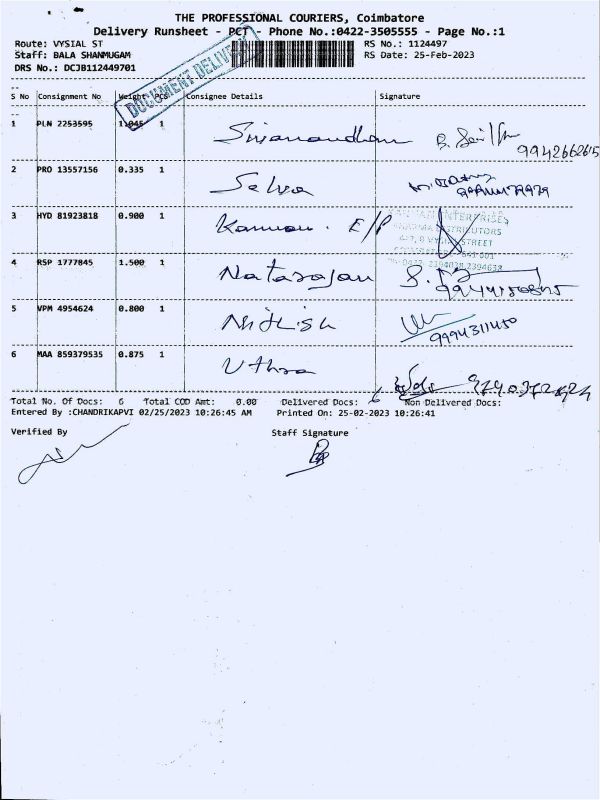 THE PROFESSIONAL COURIERS, Coimbatore
Delivery Runsheet - PCT - Phone No.:0422-3505555 - Page No.:1
Route: VYSIAL ST
RS No.: 1124497
Staff: BALA SHANMUGAM
RS Date: 25-Feb-2023
DRS No.: DCJB112449701
DOCUMENT DELIVERY
S No Consignment No Weight PCS Consignee Details Signature
1 PLN 2253595 1.045 1
9942662615
2 PRO 13557156 0.335 1 Selva
3 HYD 81923818 0.900 1 Kannan. E/P
ENTERPRISES
DISTRIBUTORS
STREET
641 001
4 RSP 1777845 1.500 1 Natarajan
5 VPM 4954624 0.800 1 Nitish
9994311450
6 MAA 859379535 0.875 1 Uthra
Total No. Of Docs: 6 Total COD Amt: 0.00 Delivered Docs: 6 Non Delivered Docs:
Entered By :CHANDRIKAPVI 02/25/2023 10:26:45 AM Printed On: 25-02-2023 10:26:41
Verified By Staff Signature